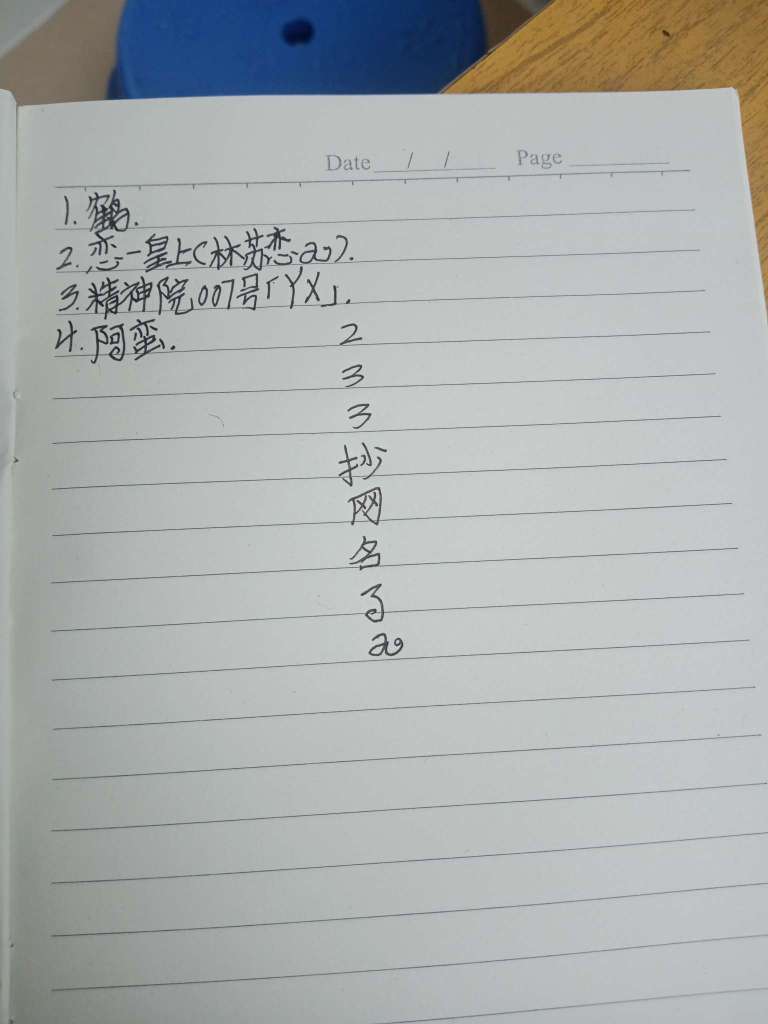 Date / / Page
1. 鹤.
2. 恋一皇上(林苏恋ටා).
3. 精神院007号「YX」.
4. 阿蛮.
2
3
3
抄
网
名
了